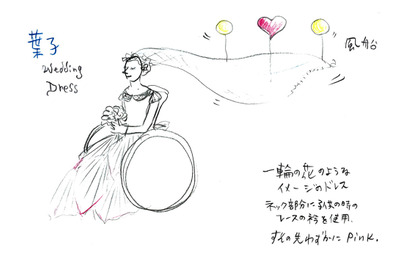 葉子
Wedding
Dress
風船
一輪の花のような
イメージのドレス
ネック部分に子供の時の
レースの衿を使用.
すその先わずかに Pink.